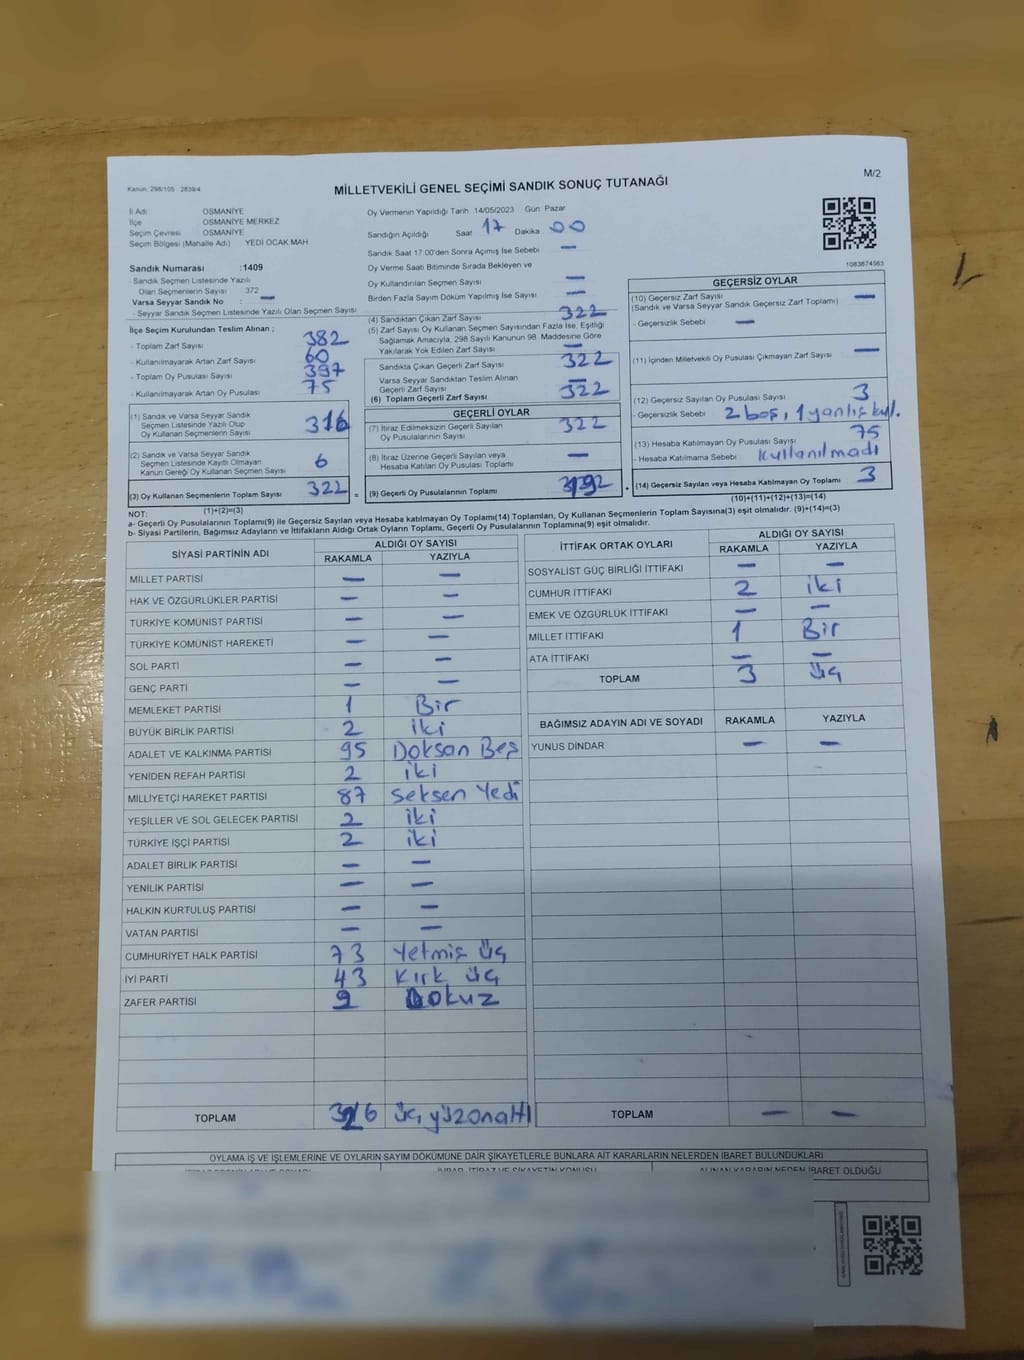 Kanun: 298/105 . 2839/4
MİLLETVEKİLİ GENEL SEÇİMİ SANDIK SONUÇ TUTANAĞI
M/2
İl Adı OSMANİYE
İlçe OSMANİYE MERKEZ
Seçim Çevresi OSMANİYE
Seçim Bölgesi (Mahalle Adı) YEDİ OCAK MAH
Sandık Numarası :1409
- Sandık Seçmen Listesinde Yazılı
Olan Seçmenlerin Sayısı 372
Varsa Seyyar Sandık No : —
- Seyyar Sandık Seçmen Listesinde Yazılı Olan Seçmen Sayısı
İlçe Seçim Kurulundan Teslim Alınan ;
- Toplam Zarf Sayısı 382
- Kullanılmayarak Artan Zarf Sayısı 60
- Toplam Oy Pusulası Sayısı 397
- Kullanılmayarak Artan Oy Pusulası 75
(1) Sandık ve Varsa Seyyar Sandık
Seçmen Listesinde Yazılı Olup
Oy Kullanan Seçmenlerin Sayısı 316
(2) Sandık ve Varsa Seyyar Sandık
Seçmen Listesinde Kayıtlı Olmayan
Kanun Gereği Oy Kullanan Seçmen Sayısı 6
(3) Oy Kullanan Seçmenlerin Toplam Sayısı 322 =
(1)+(2)=(3)
Oy Vermenin Yapıldığı Tarih :14/05/2023 Gün: Pazar
Sandığın Açıldığı Saat 17 Dakika 00
Sandık Saat 17:00'den Sonra Açımış İse Sebebi —
Oy Verme Saati Bitiminde Sırada Bekleyen ve
Oy Kullandırılan Seçmen Sayısı —
Birden Fazla Sayım Döküm Yapılmış İse Sayısı —
(4) Sandıktan Çıkan Zarf Sayısı 322
(5) Zarf Sayısı Oy Kullanan Seçmen Sayısından Fazla İse, Eşitliği
Sağlamak Amacıyla, 298 Sayılı Kanunun 98. Maddesine Göre
Yakılarak Yok Edilen Zarf Sayısı —
Sandıkta Çıkan Geçerli Zarf Sayısı 322
Varsa Seyyar Sandıktan Teslim Alınan
Geçerli Zarf Sayısı —
(6) Toplam Geçerli Zarf Sayısı 322
GEÇERLİ OYLAR
(7) İtiraz Edilmeksizin Geçerli Sayılan
Oy Pusulalarının Sayısı 322
(8) İtiraz Üzerine Geçerli Sayılan veya
Hesaba Katılan Oy Pusulası Toplamı —
(9) Geçerli Oy Pusulalarının Toplamı +
1083674563
GEÇERSİZ OYLAR
(10) Geçersiz Zarf Sayısı —
(Sandık ve Varsa Seyyar Sandık Geçersiz Zarf Toplamı)
- Geçersizlik Sebebi —
(11) İçinden Milletvekili Oy Pusulası Çıkmayan Zarf Sayısı —
(12) Geçersiz Sayılan Oy Pusulası Sayısı 3
- Geçersizlik Sebebi 2 boş, 1 yanlış kul.
(13) Hesaba Katılmayan Oy Pusulası Sayısı 75
- Hesaba Katılmama Sebebi Kullanılmadı
(14) Geçersiz Sayılan veya Hesaba Katılmayan Oy Toplamı 3
(10)+(11)+(12)+(13)=(14)
NOT:
a- Geçerli Oy Pusulalarının Toplamı(9) ile Geçersiz Sayılan veya Hesaba katılmayan Oy Toplamı(14) Toplamları, Oy Kullanan Seçmenlerin Toplam Sayısına(3) eşit olmalıdır. (9)+(14)=(3)
b- Siyasi Partilerin, Bağımsız Adayların ve İttifakların Aldığı Ortak Oyların Toplamı, Geçerli Oy Pusulalarının Toplamına(9) eşit olmalıdır.
SİYASİ PARTİNİN ADI ALDIĞI OY SAYISI
RAKAMLA YAZIYLA
MİLLET PARTİSİ — —
HAK VE ÖZGÜRLÜKLER PARTİSİ — —
TÜRKİYE KOMÜNİST PARTİSİ — —
TÜRKİYE KOMÜNİST HAREKETİ — —
SOL PARTİ — —
GENÇ PARTİ — —
MEMLEKET PARTİSİ 1 Bir
BÜYÜK BİRLİK PARTİSİ 2 iki
ADALET VE KALKINMA PARTİSİ 95 Doksan Beş
YENİDEN REFAH PARTİSİ 2 iki
MİLLİYETÇİ HAREKET PARTİSİ 87 Seksen Yedi
YEŞİLLER VE SOL GELECEK PARTİSİ 2 iki
TÜRKİYE İŞÇİ PARTİSİ 2 iki
ADALET BİRLİK PARTİSİ — —
YENİLİK PARTİSİ — —
HALKIN KURTULUŞ PARTİSİ — —
VATAN PARTİSİ — —
CUMHURİYET HALK PARTİSİ 73 Yetmiş üç
İYİ PARTİ 43 Kırk üç
ZAFER PARTİSİ 9 Dokuz
TOPLAM 316 üç yüz onaltı
İTTİFAK ORTAK OYLARI ALDIĞI OY SAYISI
RAKAMLA YAZIYLA
SOSYALİST GÜÇ BİRLİĞİ İTTİFAKI — —
CUMHUR İTTİFAKI 2 iki
EMEK VE ÖZGÜRLÜK İTTİFAKI — —
MİLLET İTTİFAKI 1 Bir
ATA İTTİFAKI — —
TOPLAM 3 üç
BAĞIMSIZ ADAYIN ADI VE SOYADI RAKAMLA YAZIYLA
YUNUS DİNDAR — —
TOPLAM — —
OYLAMA İŞ VE İŞLEMLERİNE VE OYLARIN SAYIM DÖKÜMÜNE DAİR ŞİKAYETLERLE BUNLARA AİT KARARLARIN NELERDEN İBARET BULUNDUKLARI
İHBAR, İTİRAZ VE ŞİKAYETİN KONUSU ALINAN KARARIN NEDEN İBARET OLDUĞU